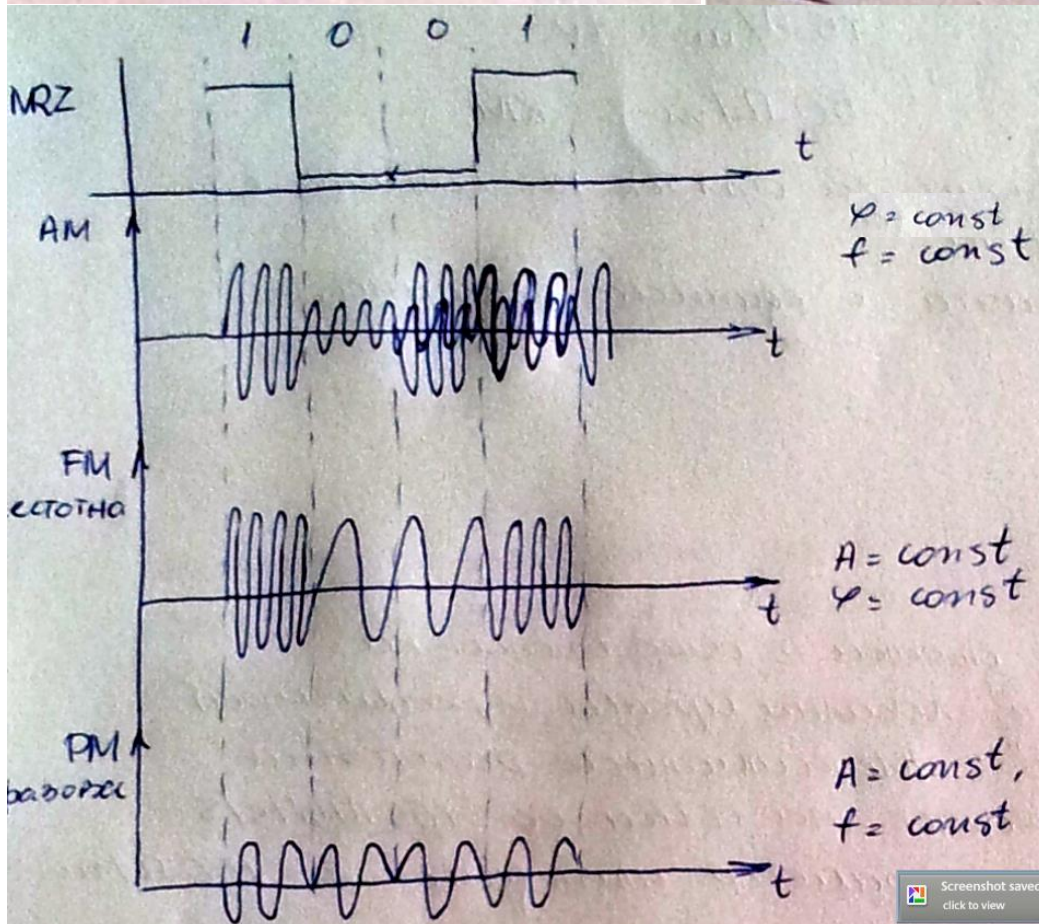 1 0 0 1
NRZ
t
AM
φ = const
f = const
t
FM
естотна
A = const
φ = const
t
PM
A = const,
f = const
t
Screenshot saved
click to view